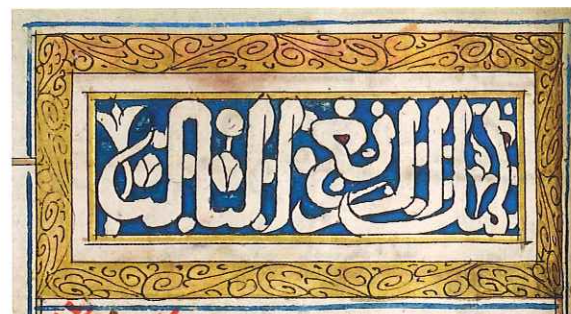 كمل الربع الثالث